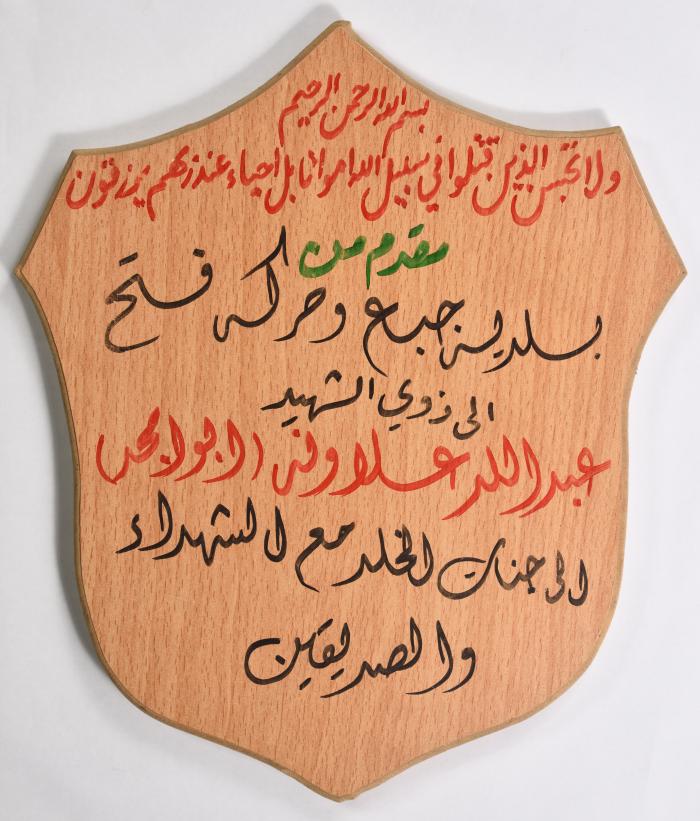 بسم الله الرحمن الرحيم
ولا تحسبن الذين قتلوا في سبيل الله امواتا بل احياء عند ربهم يرزقون
مقدم من
بلدية جبع وحركة فتح
الى ذوي الشهيد
عبدالله علاونه (ابو امجد)
الى جنات الخلد مع الشهداء
والصديقين